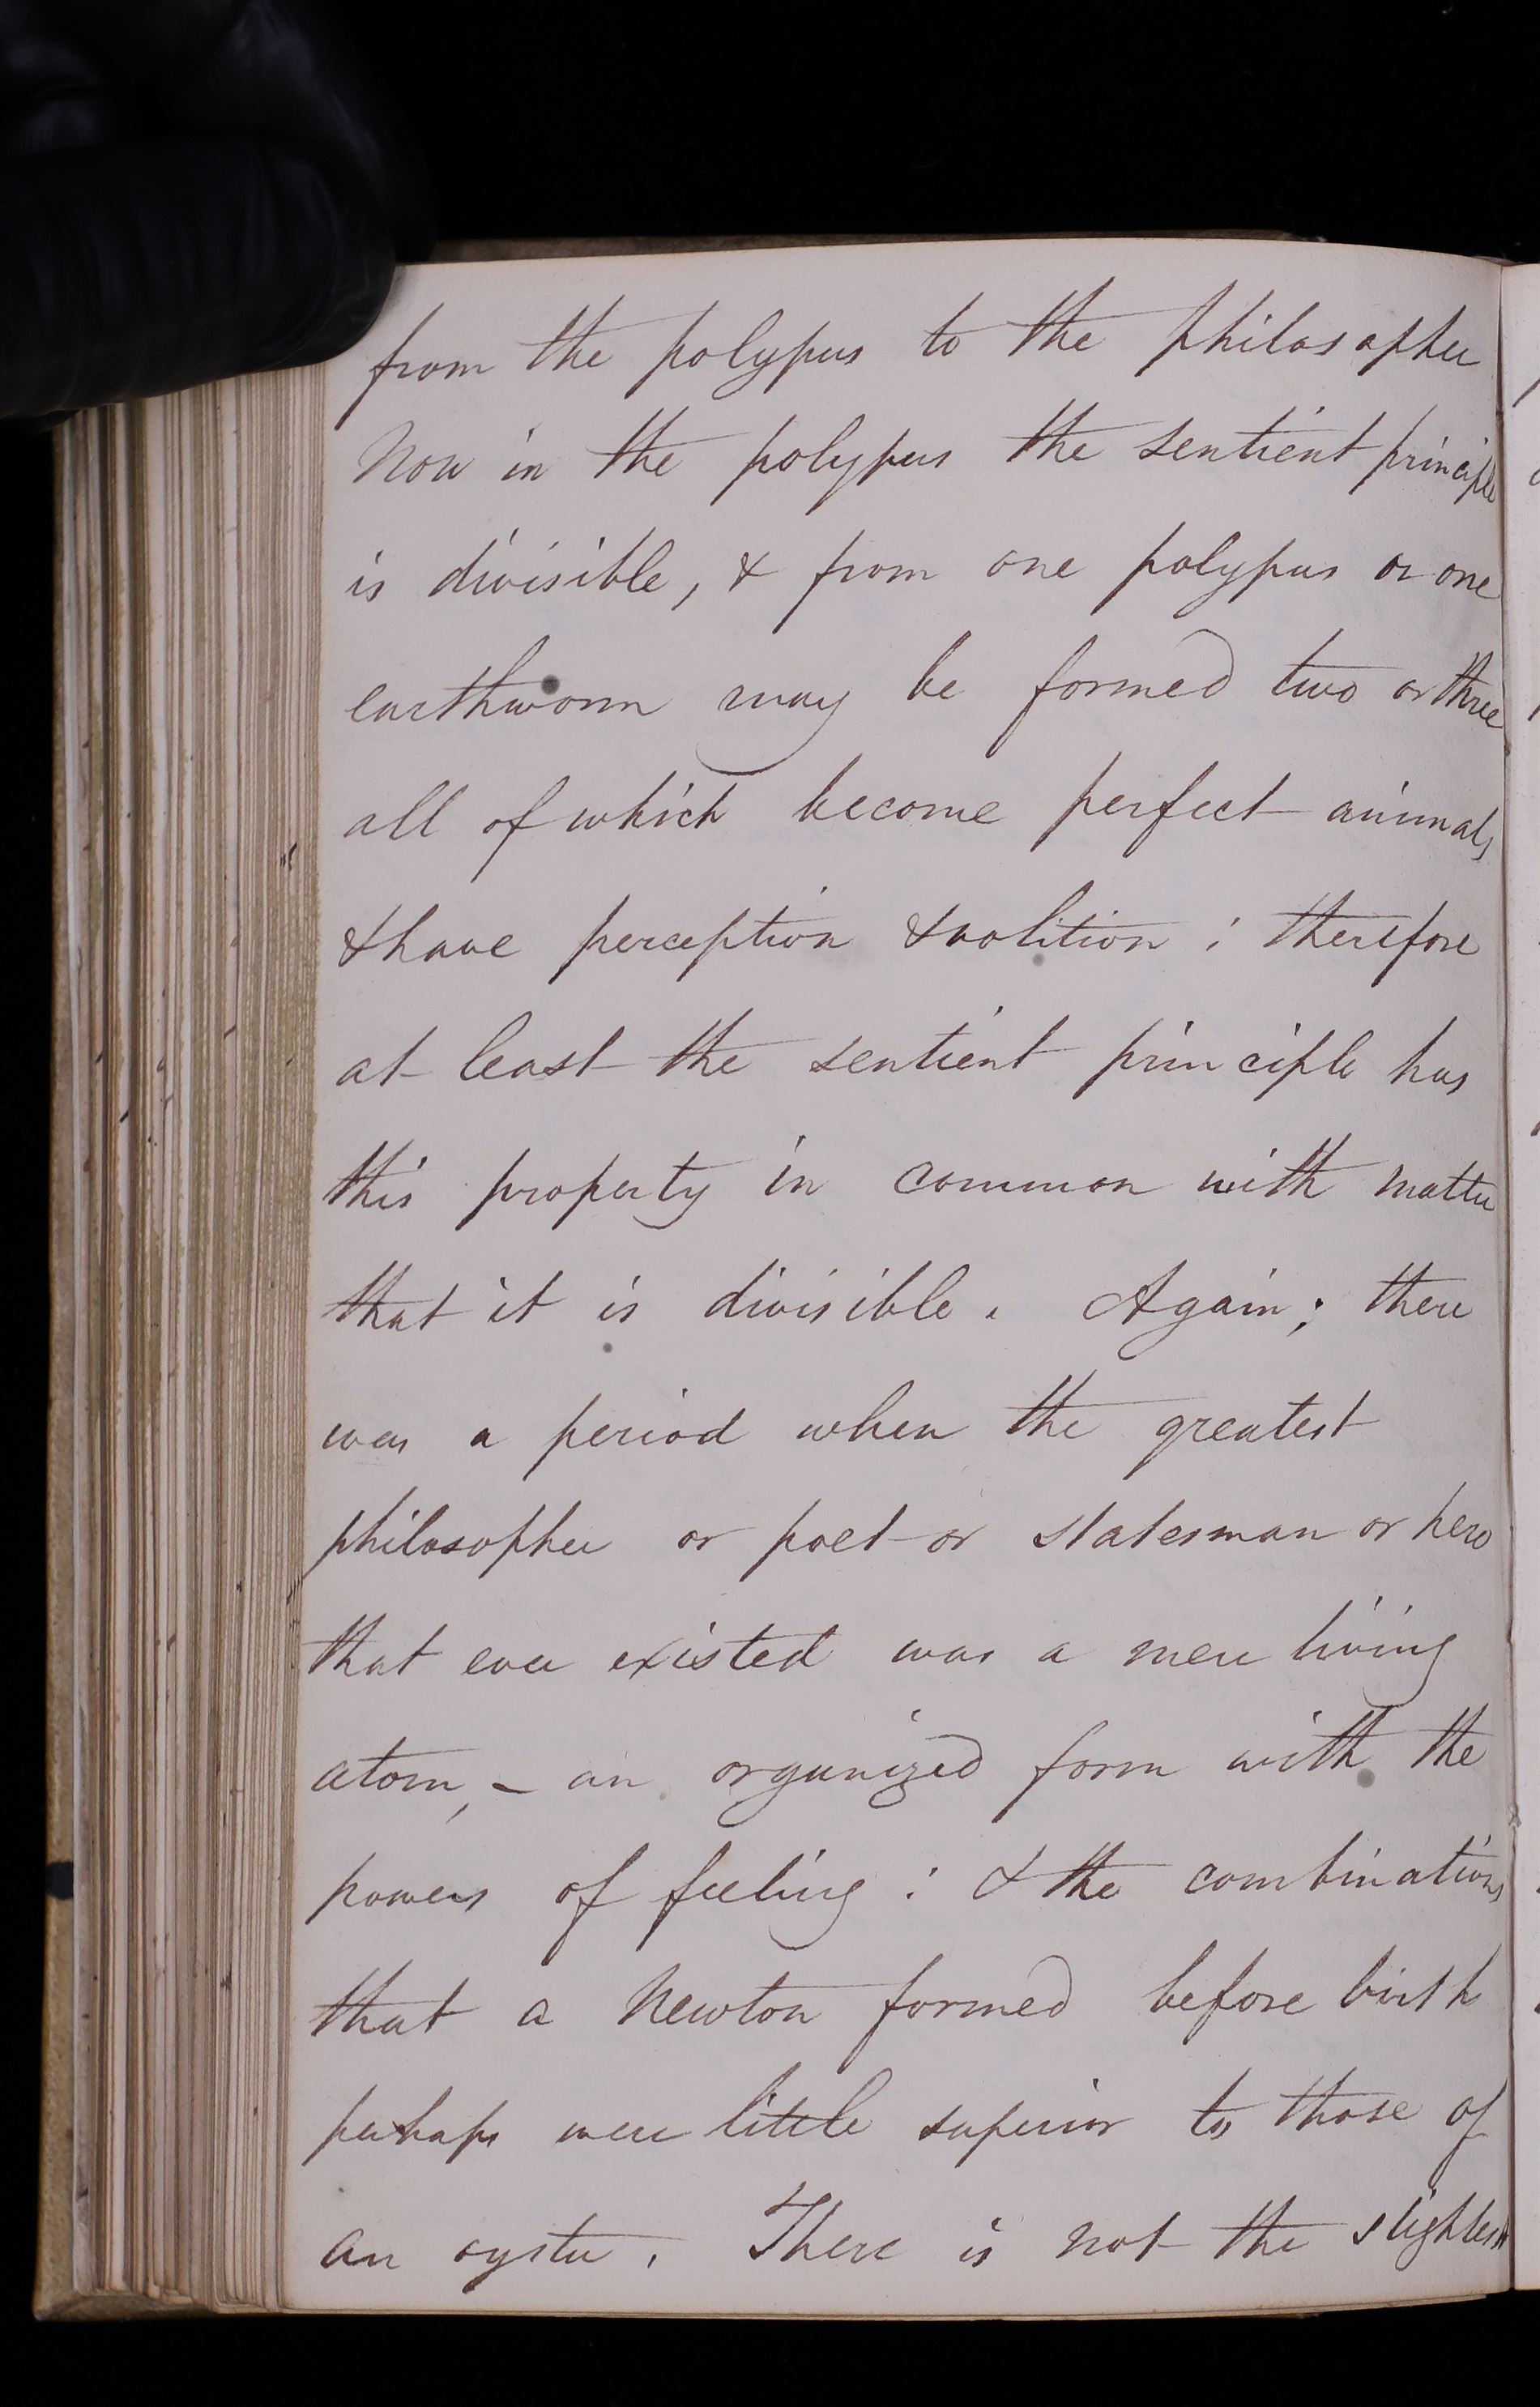 from the polypus to the philosopher
Now in the polypus the sentient principle
is divisible, & from one polypus or one
earthworm may be formed two or three
all of which become perfect animals
& have perception & volition ; therefore
at least the sentient principle has
this property in common with matter
that it is divisible . Again ; there
was a period when the greatest
philosopher or poet or statesman or hero
that ever existed was a mere living
atom, – an organized form with the
powers of feeling : & the combinations
that a Newton formed before birth
perhaps were little superior to those of
an oyster . There is not the slightest